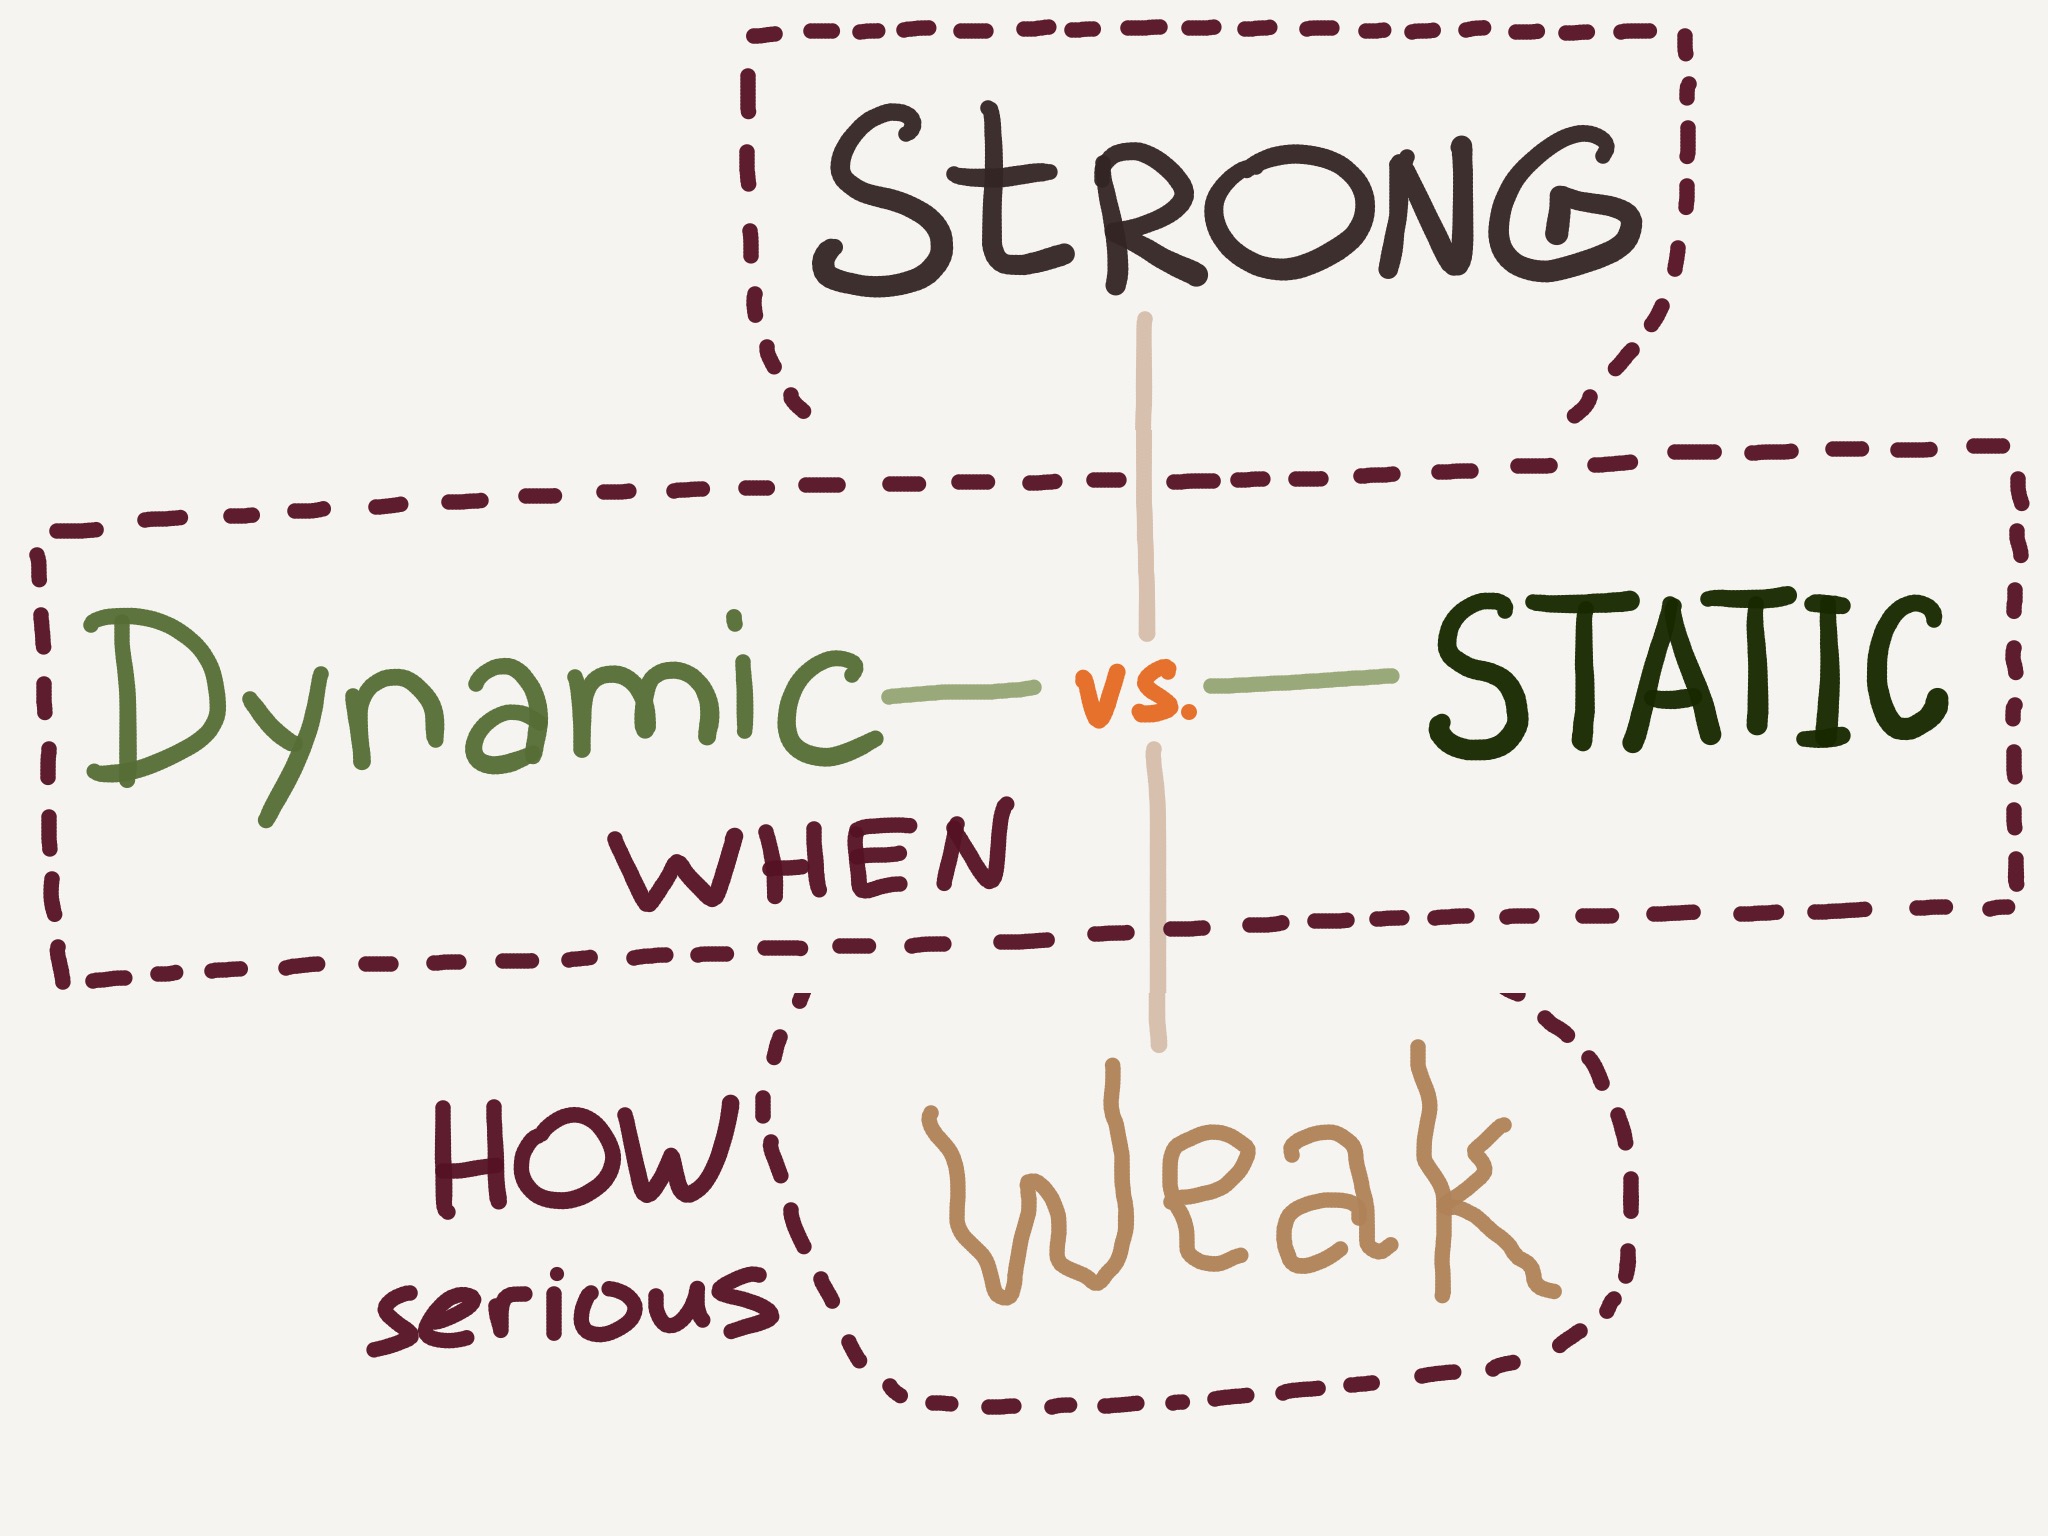 StRONG
Dynamic vs. STATIC
WHEN
HOW
serious
Weak